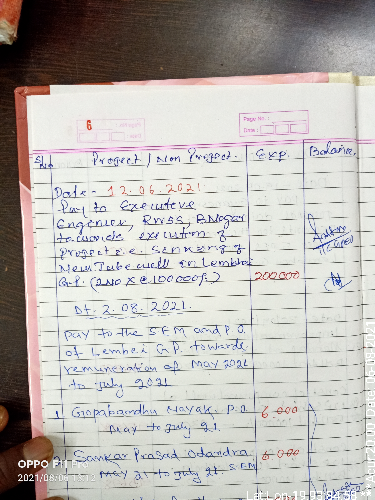 6
Page No. :
Date :
Sl No Project / Non Project. Exp. Balance.
Date - 12.06.2021
Pay to Executive
Engenier, RWSS, B Nagar
towards execution of
Project i.e. sinking of
New Tube well in Lembhei
G.P. (2 NO X @ 100000/-) 200000
Dt. 2.08.2021
pay to the SFM and P.O
of Lembei G.P. towards
remuneration of May 2021
to July 2021
1. Gopabandhu Nayak. P.O 6000
May to July 21.
Sankar Prasad 6000
May 21 to July 21. SFM
OPPO F11 Pro
2021/08/06 13:12